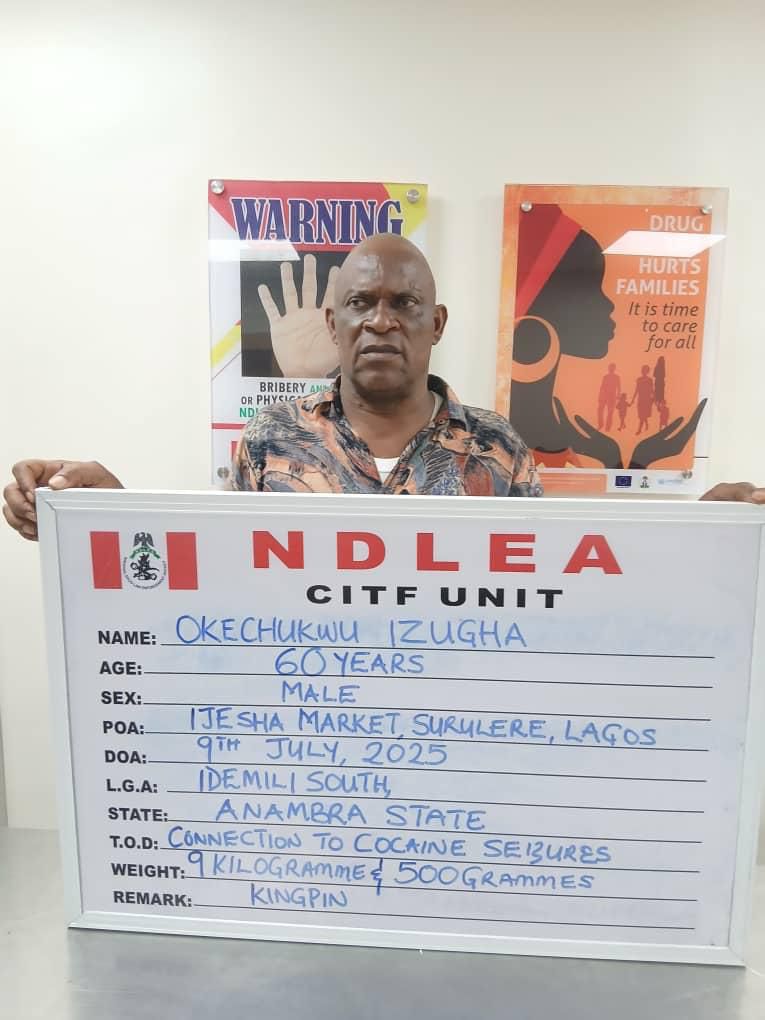 WARNING
BRIBERY AND
OR PHYSICAL
DRUG
HURTS
FAMILIES
It is time
to care
for all
NDLEA
CITF UNIT
NAME: OKECHUKWU IZUGHA
AGE: 60 YEARS
SEX: MALE
POA: IJESHA MARKET, SURULERE, LAGOS
DOA: 9TH JULY, 2025
L.G.A: IDEMILI SOUTH,
STATE: ANAMBRA STATE
T.O.D: CONNECTION TO COCAINE SEIZURES
WEIGHT: 9 KILOGRAMME & 500 GRAMMES
REMARK: KINGPIN